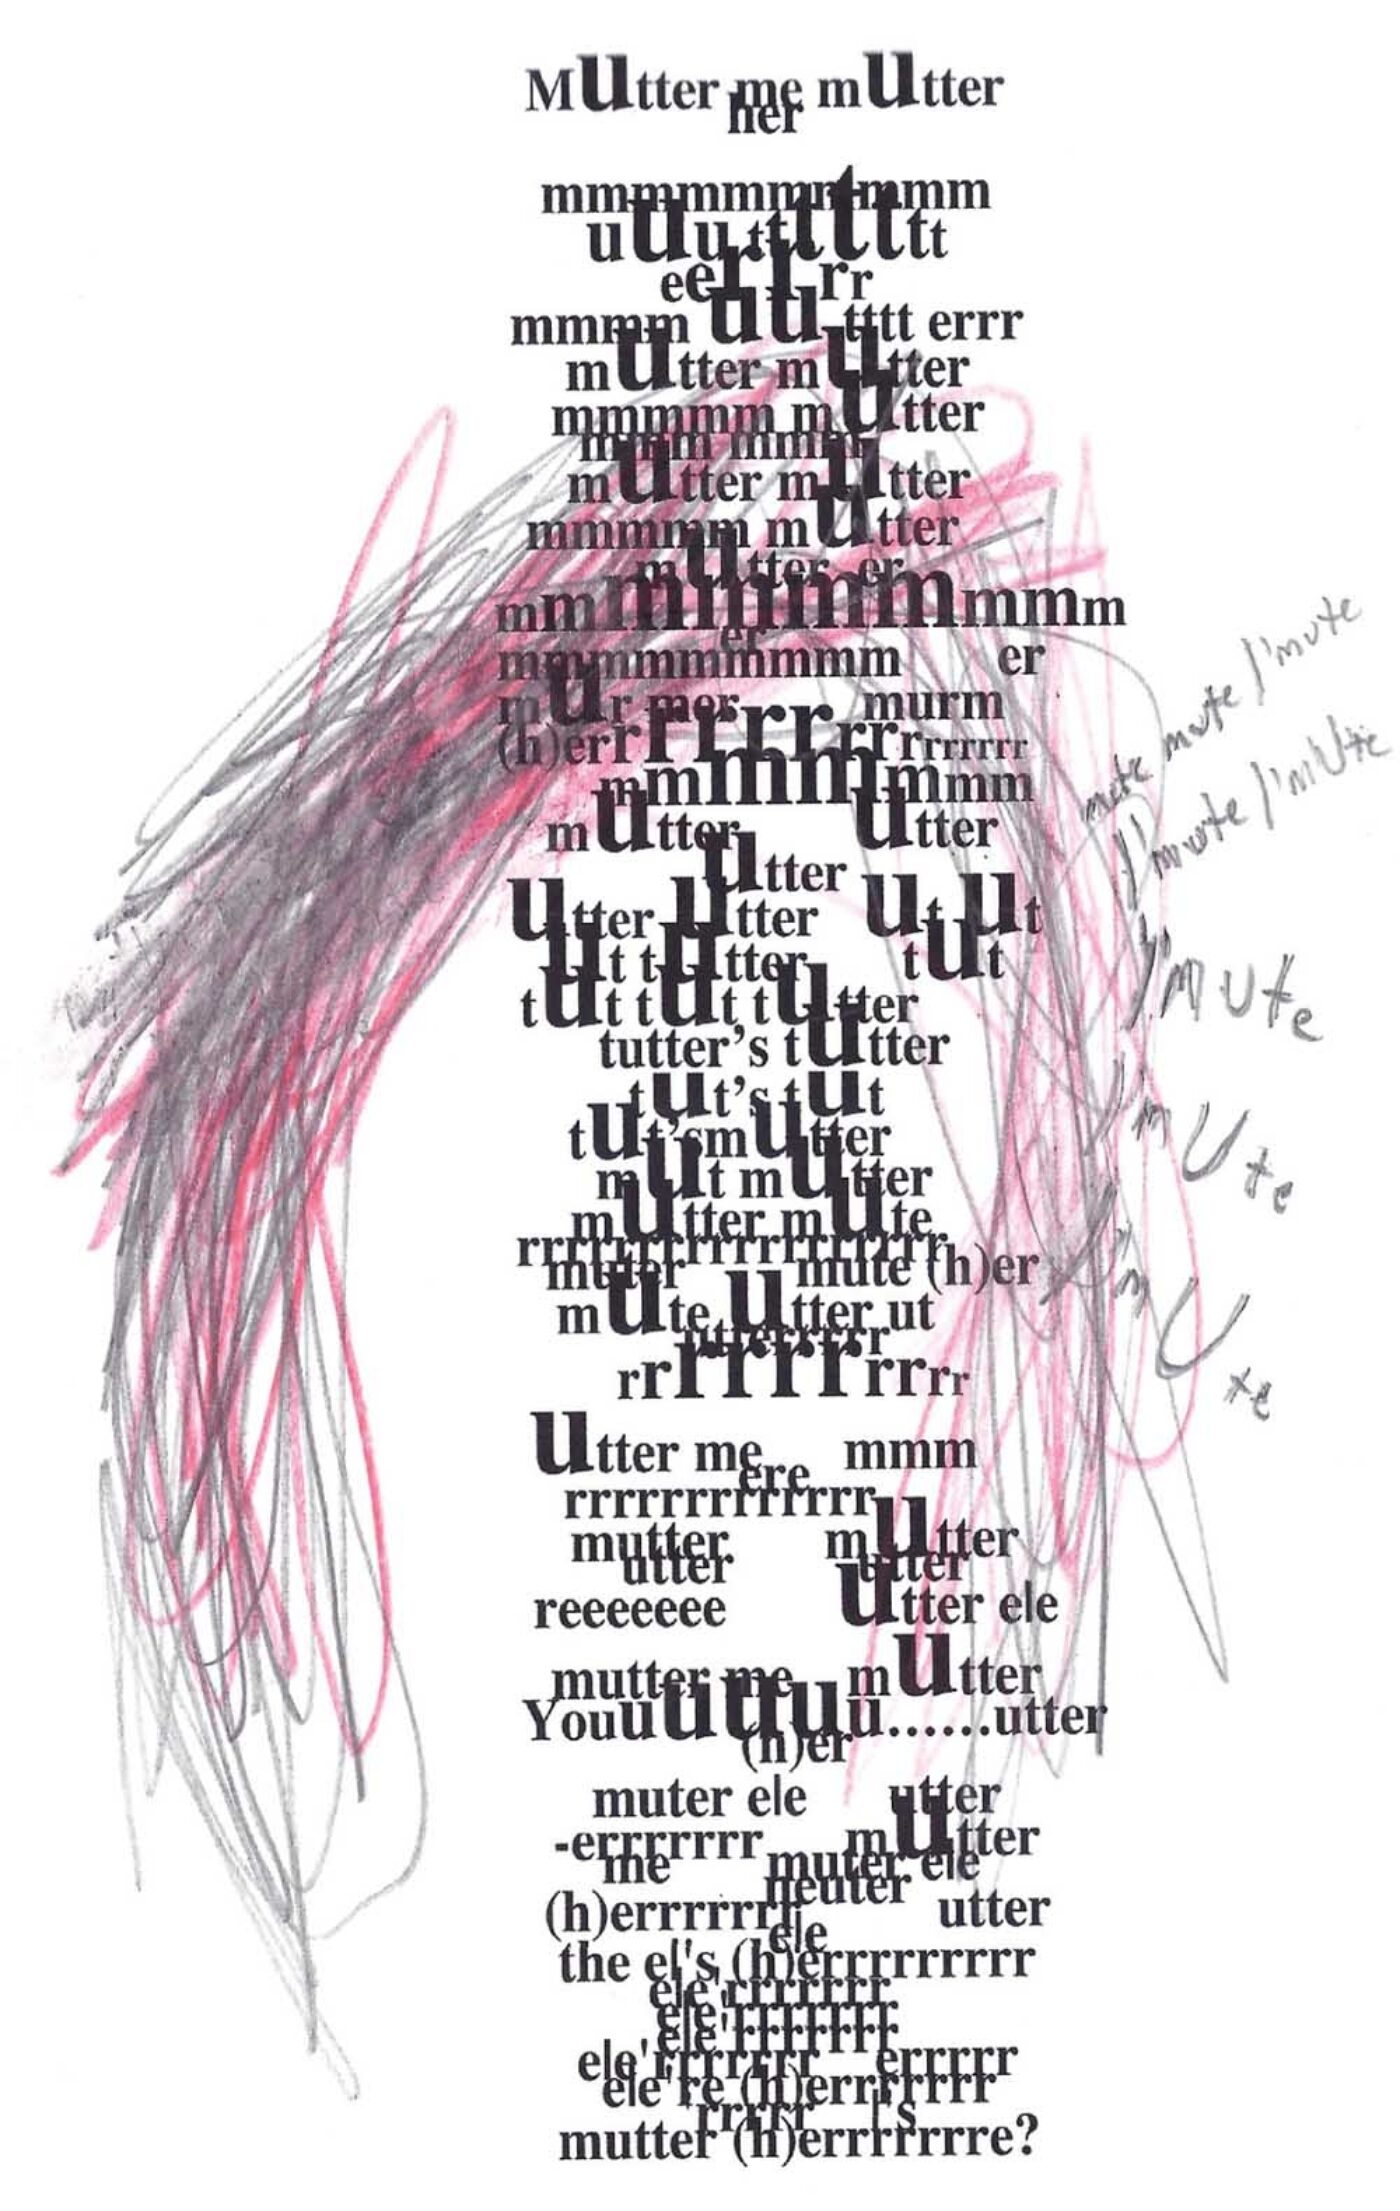 Mutter me mutter
her
mmmmmmmmmmm
uuuttttttt
eerrrr
mmmm uu tttt errr
mutter mutter
mmmmm mutter
mmm mmm
mutter mutter
mmmmm mutter
mutter er
mmmmmmmmmm
er
mmmmmmmmmm er
mur mer murm
(h)errrrrrrrrrrrrr
mmmmmmmm
mutter utter
utter
utter utter ut ut
ut tutter tut
tut tut tutter
tutter's tutter
tut's tut
tut'smutter
mut mutter
mutter mute
rrrrrrrrrrrrrrrrrr
muter mute (h)er
mute utter ut
utterrrrr
rrrrrrrrrr
utter me mmm
ere
rrrrrrrrrrrrr
mutter mutter
utter utter
reeeeeee utter ele
mutter me mutter
Youuuuuuu......utter
(h)er
muter ele utter
-errrrrrr mutter
me muter ele
neuter
(h)errrrrrr utter
ele
the el's (h)errrrrrrrrr
ele'rrrrrrr
ele'rrrrrrr
ele'rrrrrrr
ele'rrrrrrr errrrr
ele're (h)errrrrrr
rrrrr l's
mutter (h)errrrrrre?
mute mute I'mute
I'mute I'mUte
I'mUte
I'mUte
I'mUte